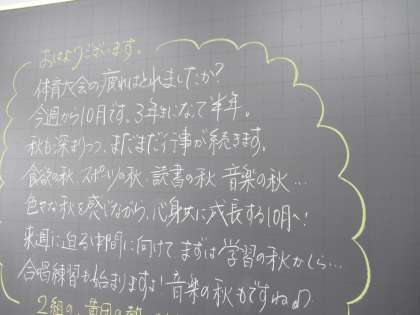 おはようございます。
体育大会の疲れはとれましたか？
今週から10月です。3年生になって半年。
秋も深まりつつ、まだまだ行事が続きます。
食欲の秋、スポーツの秋、読書の秋 音楽の秋…
色々な秋を感じながら、心身共に成長する10月へ！
来週に迫る中間に向けて、まずは学習の秋かしら…
合唱練習も始まりますよ！音楽の秋もですね♫
2組の、黄団の